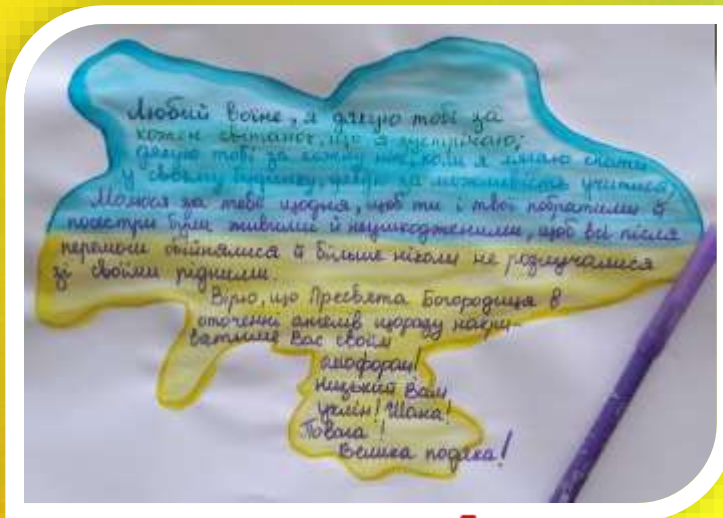 Любий воїне, я дякую тобі за
кожен світанок, що я зустрічаю;
дякую тобі за кожну ніч, коли я лягаю спати
у своєму будинку, дякую за можливість учитися;
Молюся за тебе щодня, щоб ти і твої побратими й
посестри були живими й неушкодженими, щоб всі після
перемоги обійнялися й більше ніколи не розлучалися
зі своїми рідними.
Вірю, що Пресвята Богородиця в
оточенні ангелів щоразу накри-
ватиме Вас своїм
омофором!
Низький Вам
уклін! Шана!
Повага!
Велика подяка!